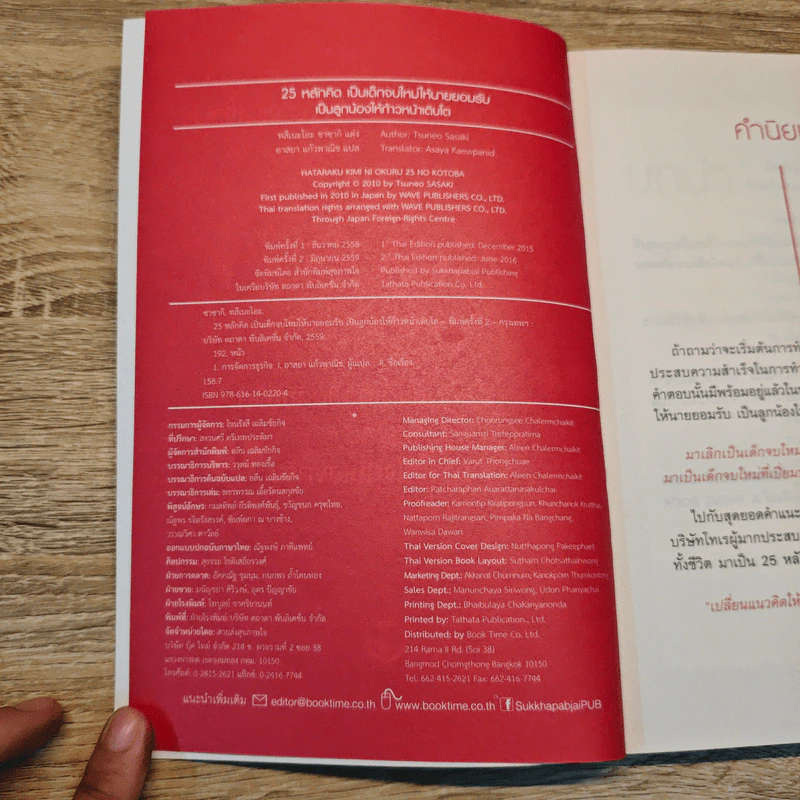 25 หลักคิด เป็นเด็กจบใหม่ให้นายยอมรับ
เป็นลูกน้องให้ก้าวหน้าเติบโต
ทสึเนะโอะ ซาซากิ แต่ง Author: Tsuneo Sasaki
อาสยา แก้วพาณิช แปล Translator: Asaya Kaewpanid
HATARAKU KIMI NI OKURU 25 NO KOTOBA
Copyright © 2010 by Tsuneo SASAKI
First published in 2010 in Japan by WAVE PUBLISHERS CO., LTD.
Thai translation rights arranged with WAVE PUBLISHERS CO., LTD.
Through Japan Foreign-Rights Centre
พิมพ์ครั้งที่ 1 : ธันวาคม 2558 1st Thai Edition published: December 2015
พิมพ์ครั้งที่ 2 : มิถุนายน 2559 2nd Thai Edition published: June 2016
จัดพิมพ์โดย สำนักพิมพ์สุขภาพใจ Published by Sukkhapabjai Publishing
ในเครือบริษัท ตถาตา พับลิเคชั่น จำกัด Tathata Publication Co. Ltd.
ซาซากิ, ทสึเนะโอะ.
25 หลักคิด เป็นเด็กจบใหม่ให้นายยอมรับ เป็นลูกน้องให้ก้าวหน้าเติบโต.-- พิมพ์ครั้งที่ 2.-- กรุงเทพฯ :
บริษัท ตถาตา พับลิเคชั่น จำกัด, 2559.
192. หน้า
1. การจัดการธุรกิจ I. อาสยา แก้วพาณิช, ผู้แปล. II. ชื่อเรื่อง.
158.7
ISBN 978-616-14-0220-4
กรรมการผู้จัดการ: โจนรังสี เฉลิมชัยกิจ Managing Director: Chonrungsee Chalermchaikit
ที่ปรึกษา: สงวนศรี ตรีเทพประติมา Consultant: Sanguansri Treteppratima
ผู้จัดการสำนักพิมพ์: อลีน เฉลิมชัยกิจ Publishing House Manager: Aleen Chalermchaikit
บรรณาธิการบริหาร: วรุตม์ ทองเชื้อ Editor in Chief: Varut Thongchuae
บรรณาธิการต้นฉบับแปล: อลีน เฉลิมชัยกิจ Editor for Thai Translation: Aleen Chalermchaikit
บรรณาธิการเล่ม: พชรพรรณ เอื้อรัตนสกุลชัย Editor: Patcharaphan Auarattanasakulchai
พิสูจน์อักษร: กมลทิพย์ กีรติพงศ์พันธุ์, ขวัญชนก ครุฑไทย, Proofreader: Kamontip Kiratipongpun, Khunchanok Krutthai,
ณัฐพร รจิตรังสรรค์, พิมพ์ผกา ณ บางช้าง, Nattaporn Rajitrangsan, Pimpaka Na Bangchang,
วรรณวิศา ดาวัลย์ Wanwisa Dawan
ออกแบบปกฉบับภาษาไทย: ณัฐพงษ์ ภาคีแพทย์ Thai Version Cover Design: Nutthapong Pakeephaet
ศิลปกรรม: สุธรรม โชติเสถียรวงศ์ Thai Version Book Layout: Sutham Chotsathainwong
ฝ่ายการตลาด: อัคคณัฐ ชุมนุม, กนกพร ถ้ำโคนทอง Marketing Dept.: Akkanat Chumnum, Kanokporn Thumkontong
ฝ่ายขาย: มนัญชยา ศิริวงษ์, อุดร ปัญญาชัย Sales Dept.: Manunchaya Siriwong, Udon Phanyachai
ฝ่ายโรงพิมพ์: ไพบูลย์ ชาครียานนท์ Printing Dept.: Bhaibulaya Chakanyanonda
พิมพ์ที่: ฝ่ายโรงพิมพ์ บริษัท ตถาตา พับลิเคชั่น จำกัด Printed by: Tathata Publication., Ltd.
จัดจำหน่ายโดย: สายส่งสุขภาพใจ Distributed by: Book Time Co. Ltd.
บริษัท บุ๊ค ไทม์ จำกัด 214 ซ. พระรามที่ 2 ซอย 38 214 Rama II Rd. (Soi 38)
แขวงบางมด เขตจอมทอง กทม. 10150 Bangmod Chomgthong Bangkok 10150
โทรศัพท์: 0-2415-2621 แฟ็กซ์: 0-2416-7744 Tel: 662-415-2621 Fax: 662-416-7744
แนะนำเพิ่มเติม editor@booktime.co.th www.booktime.co.th f SukkhapabjaiPUB
คำนิยม
ถ้าถามว่าจะเริ่มต้นการทำ
ประสบความสำเร็จในการทำ
คำตอบนั้นมีพร้อมอยู่แล้วใน
ให้นายยอมรับ เป็นลูกน้อง
มาเลิกเป็นเด็กจบใหม่
มาเป็นเด็กจบใหม่ที่เปี่ยม
ไปกับสุดยอดคำแนะ
บริษัทโทเรผู้มากประสบ
ทั้งชีวิต มาเป็น 25 หลั
"เปลี่ยนแนวคิดให้